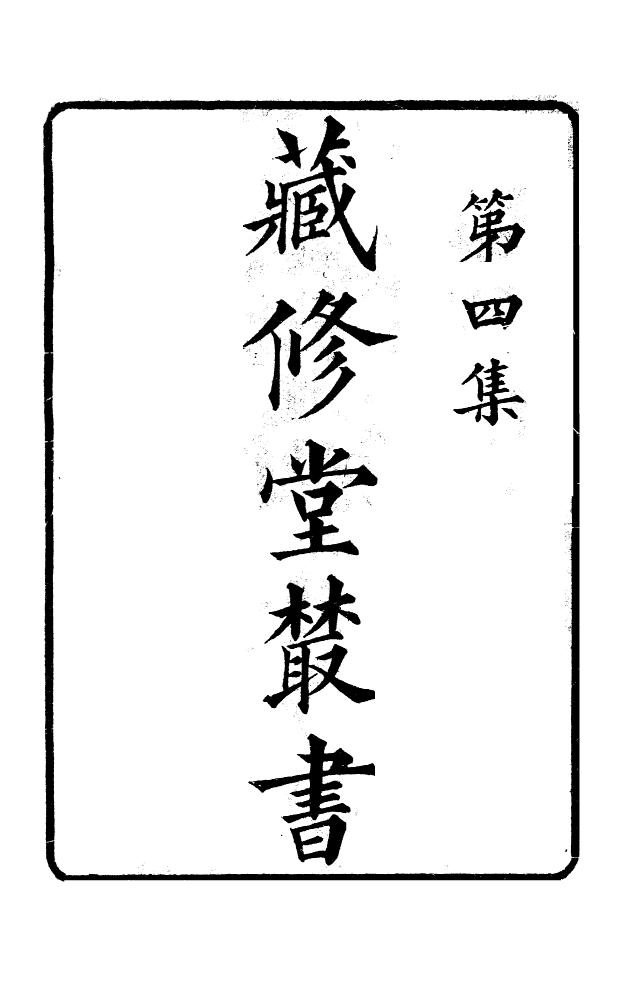 第四集
藏修堂叢書